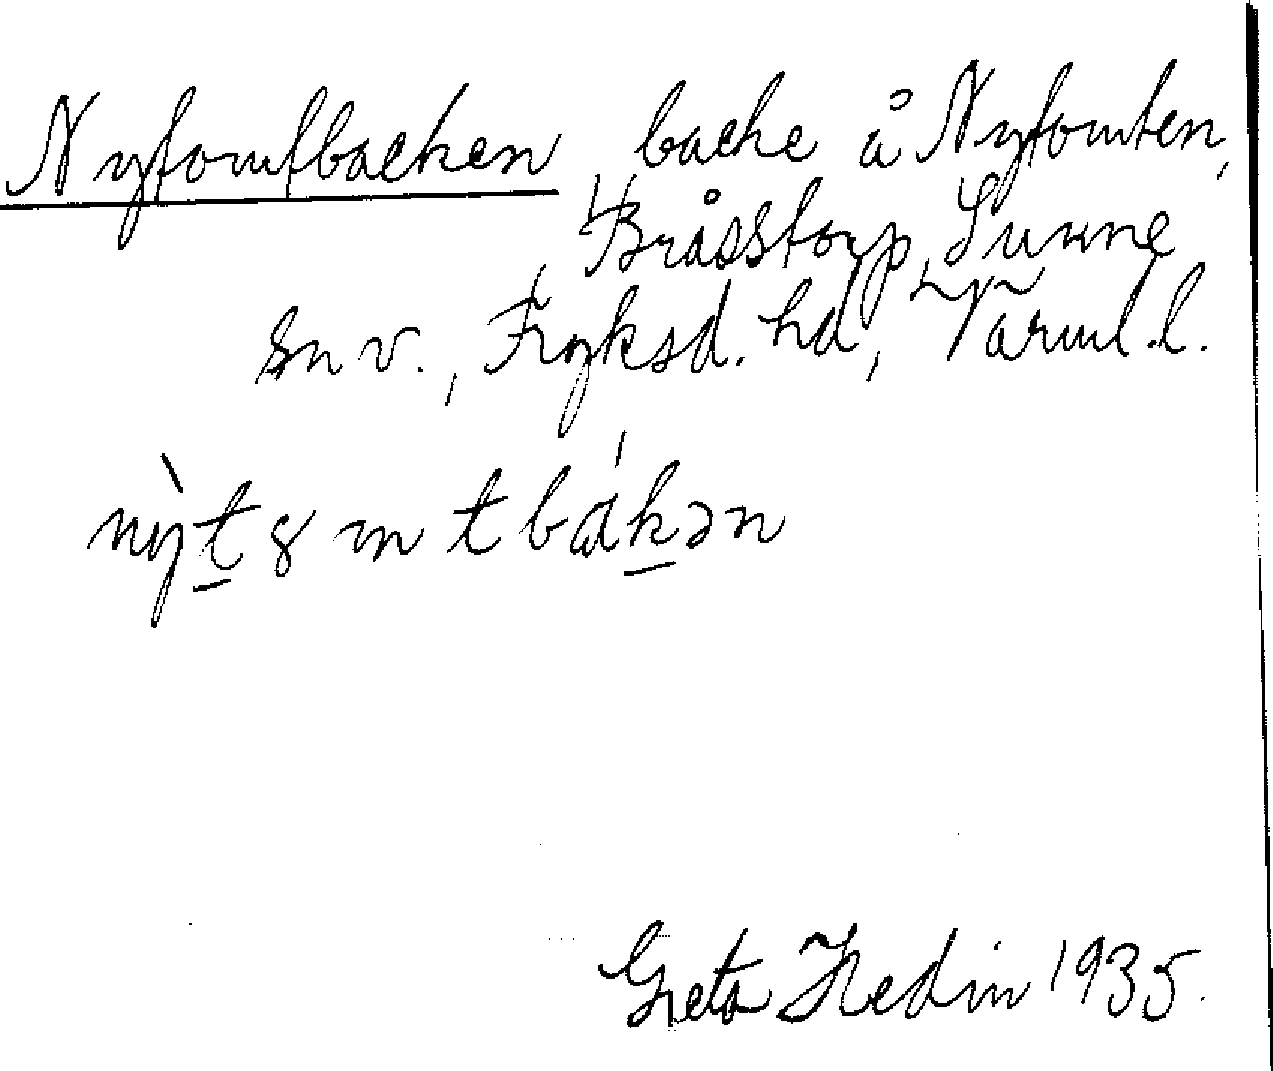 Nytomtbacken, backe å Nytomten,
Bråstorp, Sunne
sn v., Fryksd. hd, Värml. l.
nỳt8mtbákən
Greta Hedin 1935.